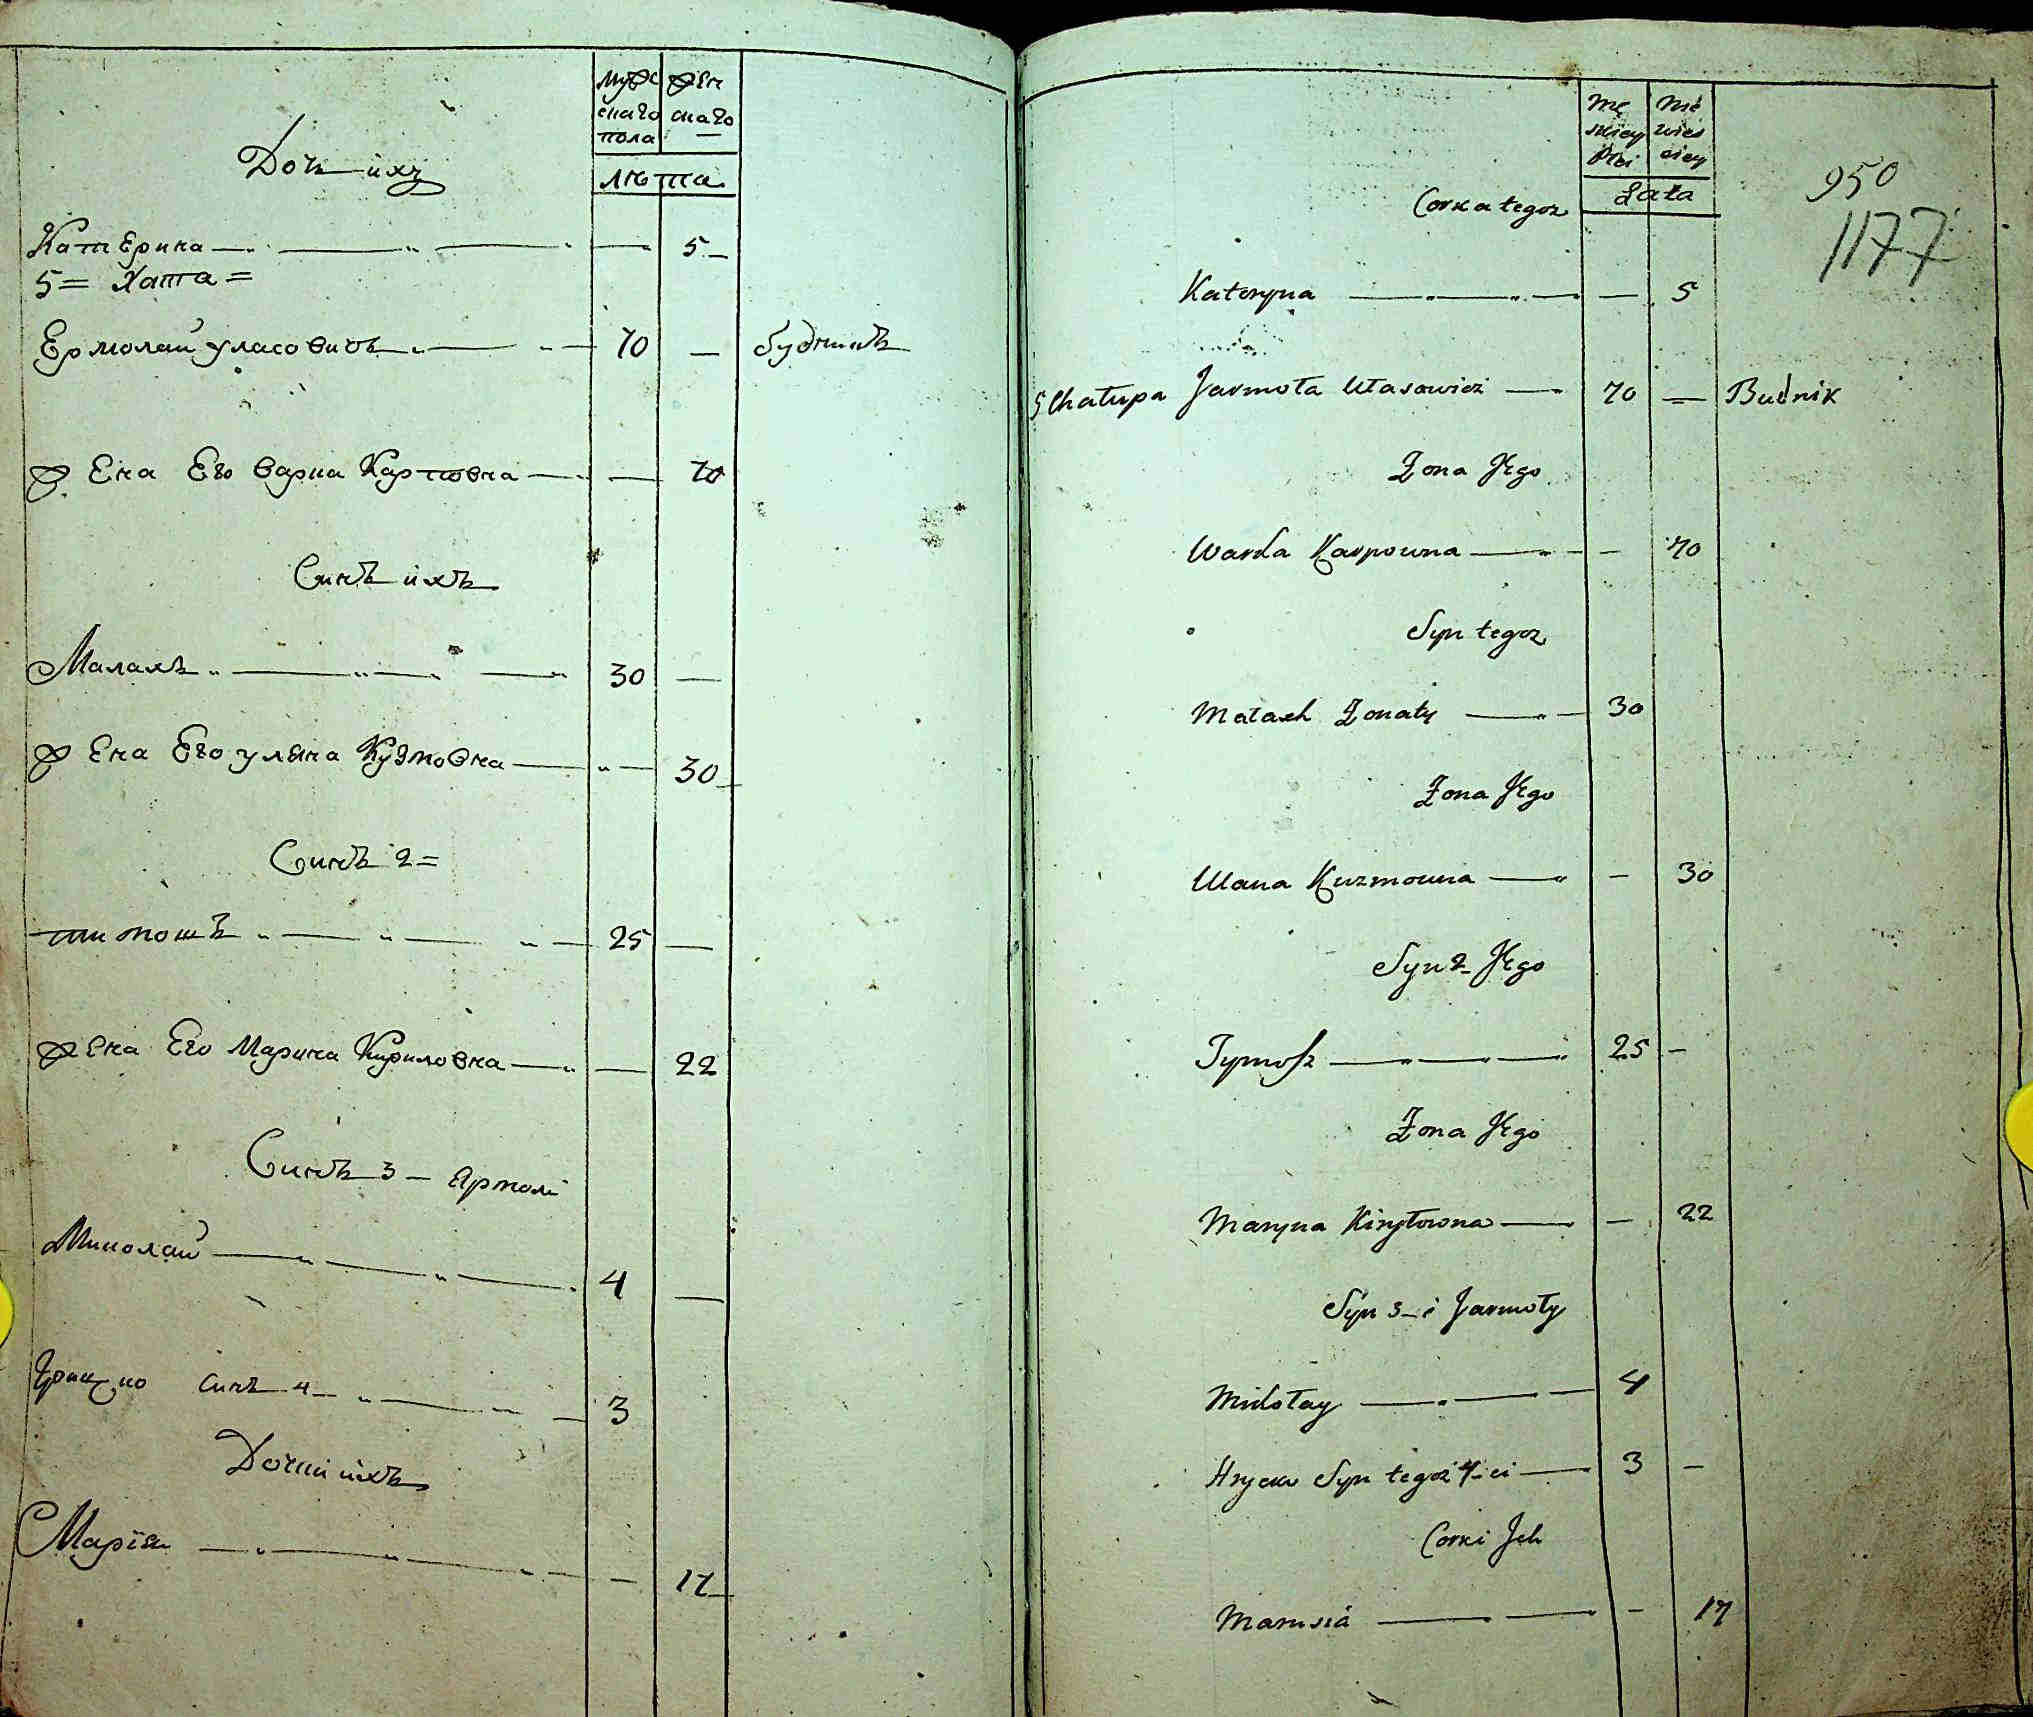 мужескаго пола женскаго
лѣта
Дочь ихъ
Катерина 5
5 = Хата =
Ермолай Уласовичъ 70 — будникъ
Жена Его Варка Карповна — 70
Синъ ихъ
Малахъ 30 —
Жена Его Уляна Кузмовна — 30
Синъ 2 =
Тимошъ 25 —
Жена Его Марина Кириловна — 22
Синъ 3 – Ярмоли
Миколай 4 —
Грицко Синъ 4 3
Дочки ихъ
Марія — 17
Męskiey Płci Niewiesciey
Lata
950
1177
Corka tegoz
Kateryna — 5
5 Chałupa Jarmoła Ułasowicz — 70 — Budnik
Zona Jego
Warka Karpowna — 70
Syn tegoz
Małach Zonaty — 30
Zona Jego
Ulana Kuzmowna — 30
Syn 2 Jego
Tymosz — 25 —
Zona Jego
Maryna Kiryłowna — 22
Syn 3-i Jarmoły
Mikołay — 4
Hrycko Syn tegoz 4-ci — 3 —
Corki Jch
Marusia — 17